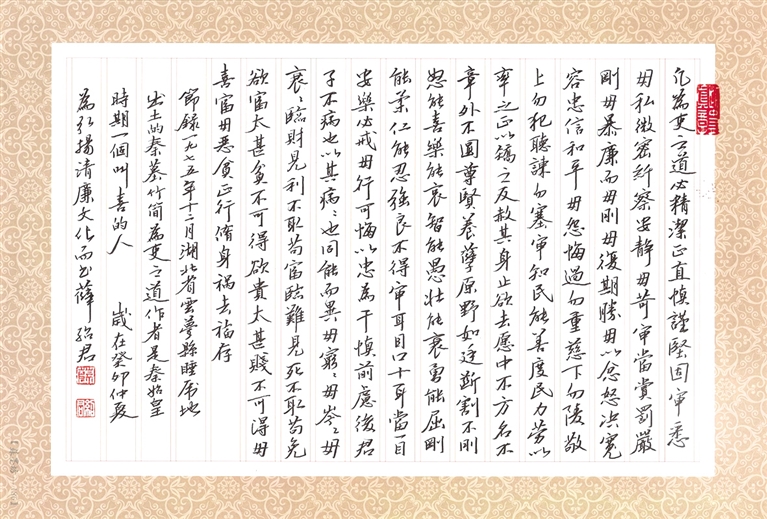 凡為吏之道必精潔正直慎謹堅固審悉
毋私微密纤察安静毋苛审當賞罰嚴
剛毋暴廉而毋刖毋復期勝毋以忿怒决寬
容忠信和平毋怨悔過勿重慈下勿陵敬
上勿犯聽諫勿塞审知民能善度民力勞以
率之正以矯之反赦其身止欲去愿中不方名不
章外不圆尊賢養孽原野如廷断割不刖
怒能喜樂能哀智能愚壮能衰勇能屈剛
能柔仁能忍强良不得审耳目口十耳當一目
安樂必戒毋行可悔以忠為干慎前慮後君
子不病也以其病〻也同能而異毋窮〻毋岑〻毋
衰〻臨財見利不取苟富臨難見死不取苟免
欲富太甚貧不可得欲貴太甚賤不可得毋
喜富毋恶貧正行脩身禍去福存
節錄一九七五年十二月湖北省雲夢縣睡虎地
出土的秦墓竹简為吏之道作者是秦始皇
時期一個叫喜的人 歲在癸卯仲夏
為弘揚清廉文化而书薛紹君